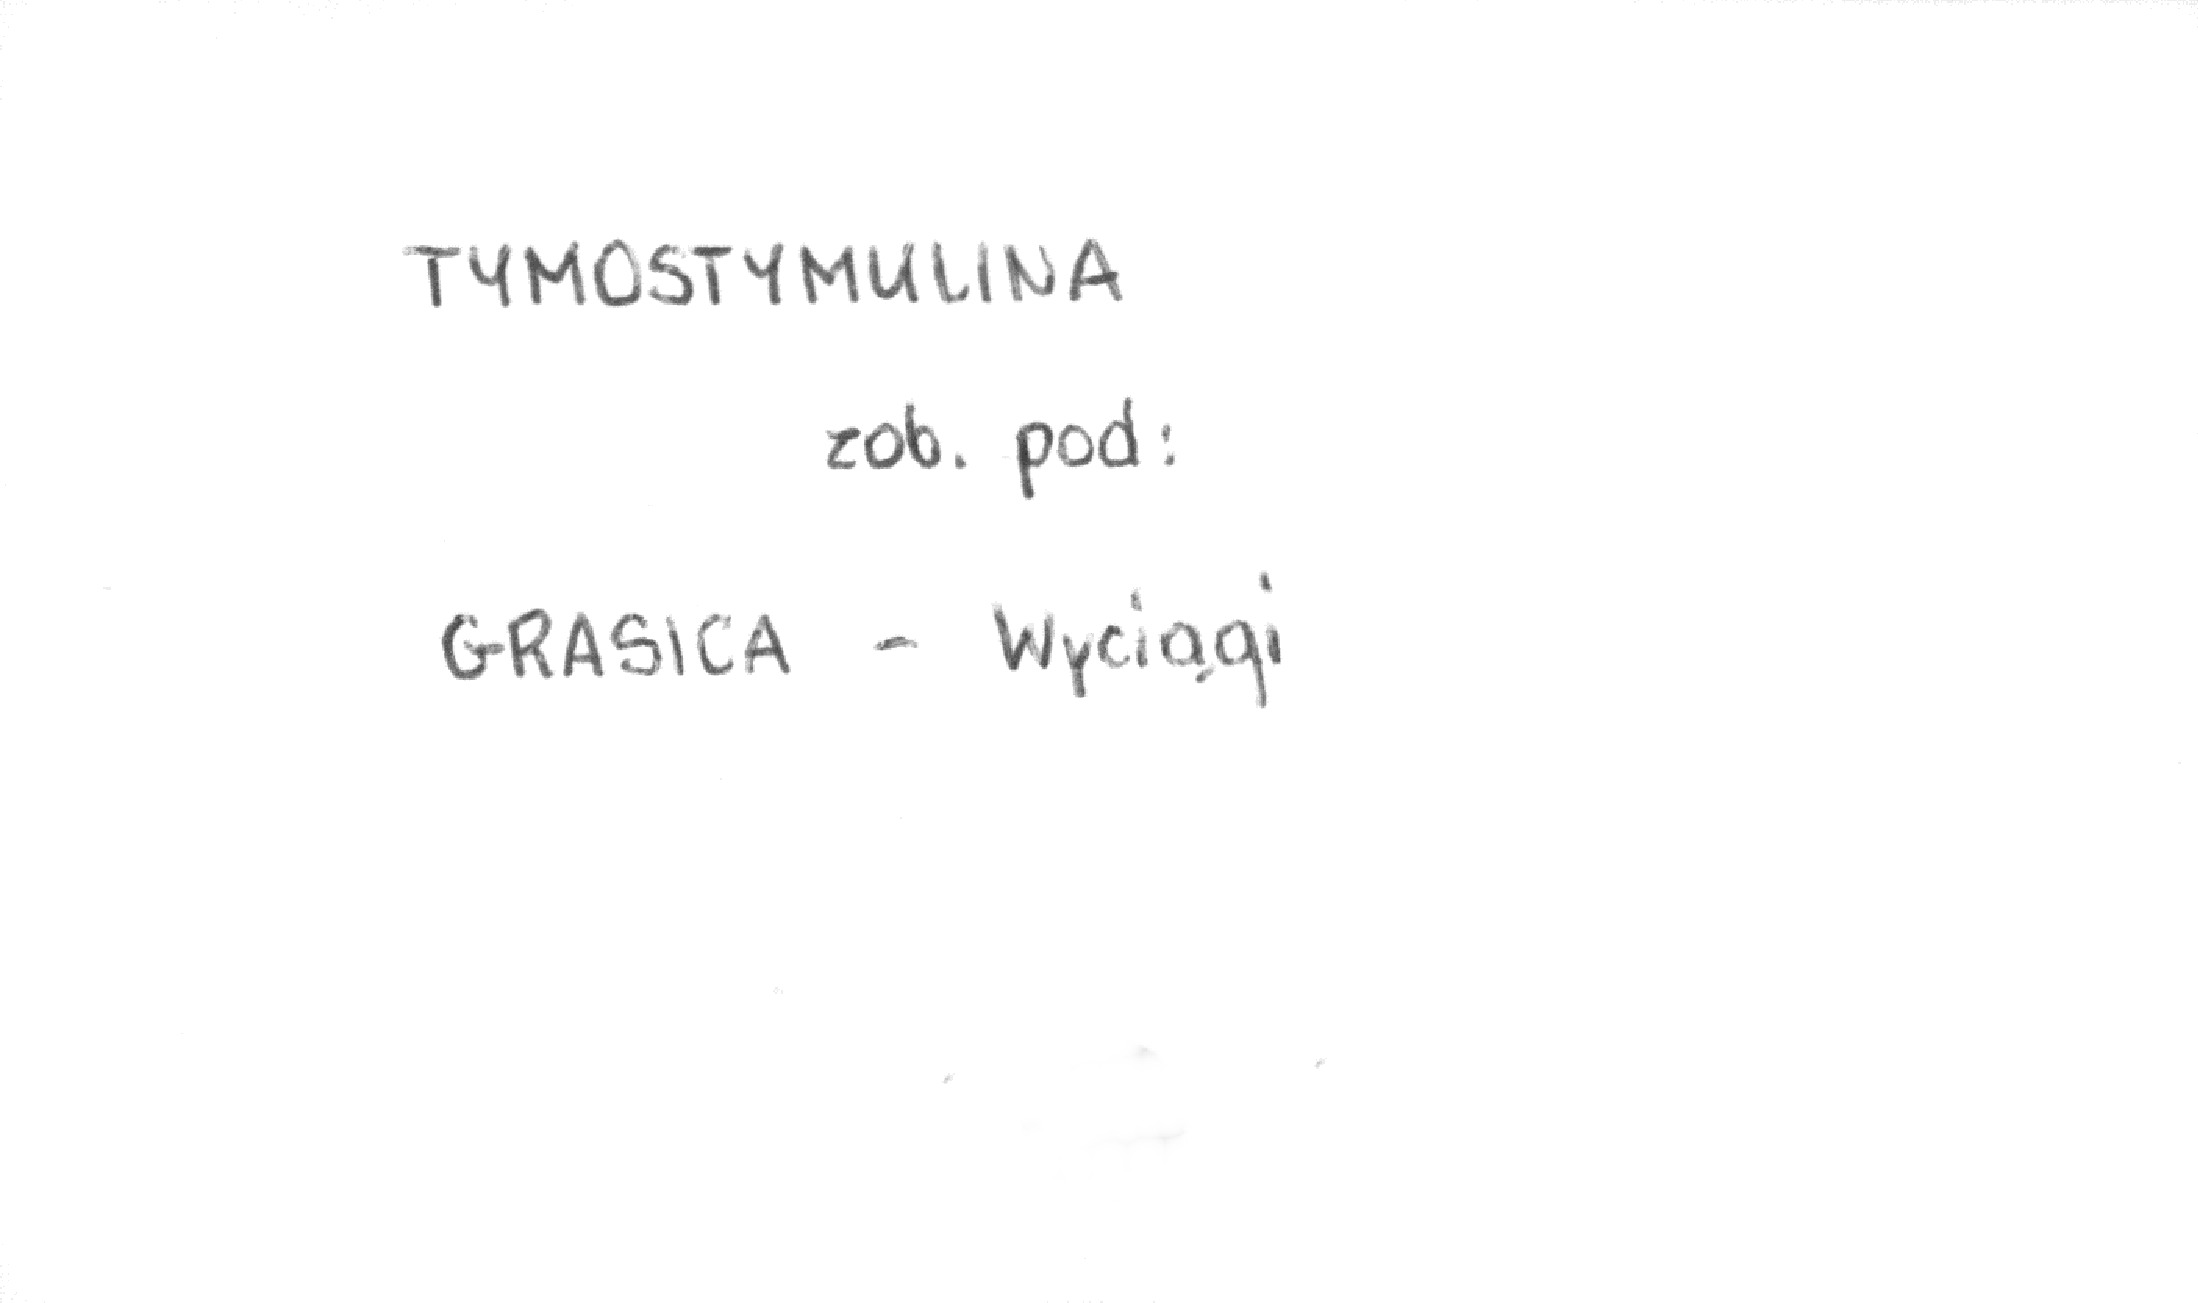 TYMOSTYMULINA
zob. pod:
GRASICA - Wyciągi